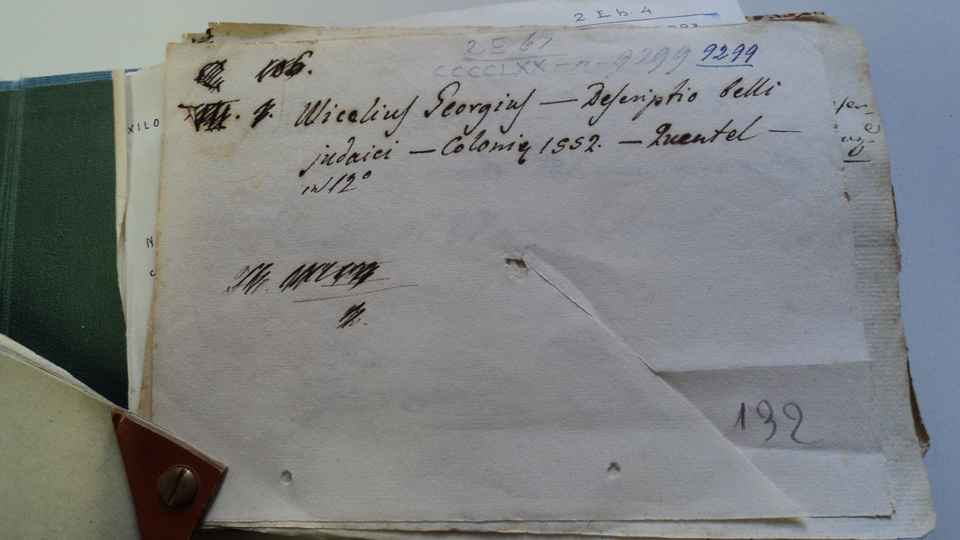 2 E h. 4
2 E 67
CCCCLXX - n - 9299 9299
106.
Wicelius Georgius — Descriptio belli
judaici — Colonię 1552. — Quentel —
in 12°
XILO
N
132